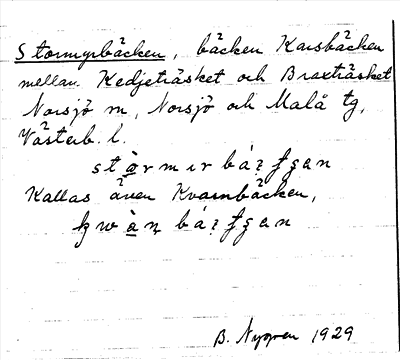 Stormyrbäcken, bäcken Karsbäcken
mellan Kedjeträsket och Braxträsket
Norsjö sn, Norsjö och Malå tg,
Västerb. l.
Kallas även Kvarnbäcken,
B. Nygren 1929